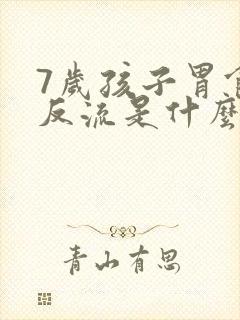 7歲孩子胃食
反流是什麼
青山有思